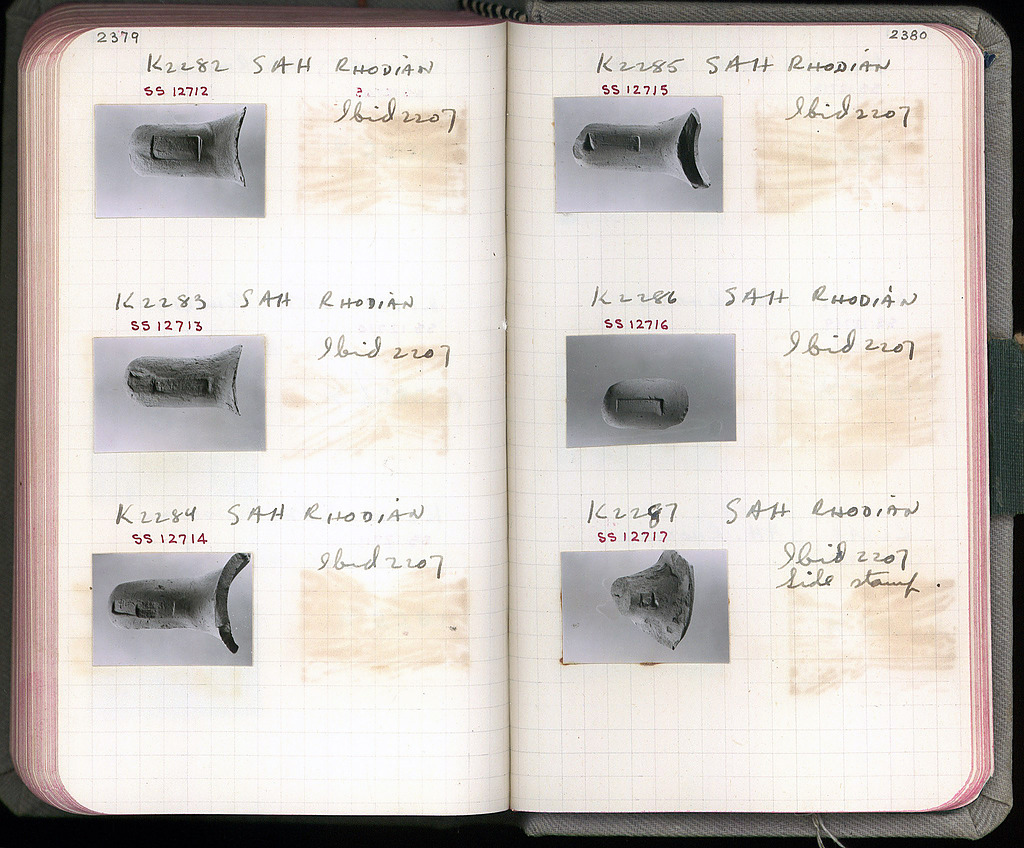 2379
K2282 SAH RHODIAN
SS 12712
Ibid 2207
K2283 SAH RHODIAN
SS 12713
Ibid 2207
K2284 SAH RHODIAN
SS 12714
Ibid 2207
2380
K2285 SAH RHODIAN
SS 12715
Ibid 2207
K2286 SAH RHODIAN
SS 12716
Ibid 2207
K2287 SAH RHODIAN
SS 12717
Ibid 2207
Side stamp.